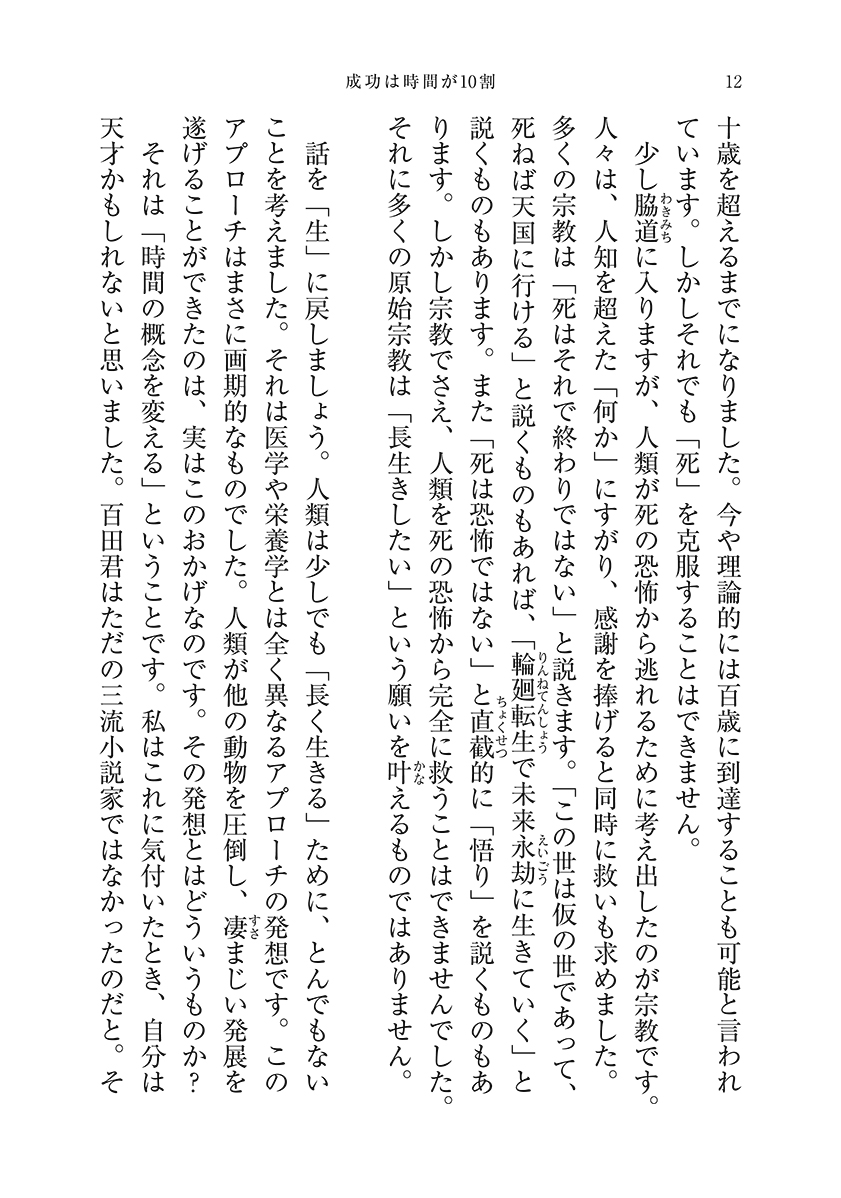 成功は時間が10割
12
十歳を超えるまでになりました。今や理論的には百歳に到達することも可能と言われ
ています。しかしそれでも「死」を克服することはできません。
少し脇道に入りますが、人類が死の恐怖から逃れるために考え出したのが宗教です。
わきみち
人々は、人知を超えた「何か」にすがり、感謝を捧げると同時に救いも求めました。
多くの宗教は「死はそれで終わりではない」と説きます。「この世は仮の世であって、
死ねば天国に行ける」と説くものもあれば、「輪廻転生で未来永劫に生きていく」と
りんねてんしょう
えいごう
説くものもあります。また「死は恐怖ではない」と直截的に「悟り」を説くものもあ
ちょくせつ
ります。しかし宗教でさえ、人類を死の恐怖から完全に救うことはできませんでした。
それに多くの原始宗教は「長生きしたい」という願いを叶えるものではありません。
かな
話を「生」に戻しましょう。人類は少しでも「長く生きる」ために、とんでもない
ことを考えました。それは医学や栄養学とは全く異なるアプローチの発想です。この
アプローチはまさに画期的なものでした。人類が他の動物を圧倒し、凄まじい発展を
すさ
遂げることができたのは、実はこのおかげなのです。その発想とはどういうものか？
それは「時間の概念を変える」ということです。私はこれに気付いたとき、自分は
天才かもしれないと思いました。百田君はただの三流小説家ではなかったのだと。そ